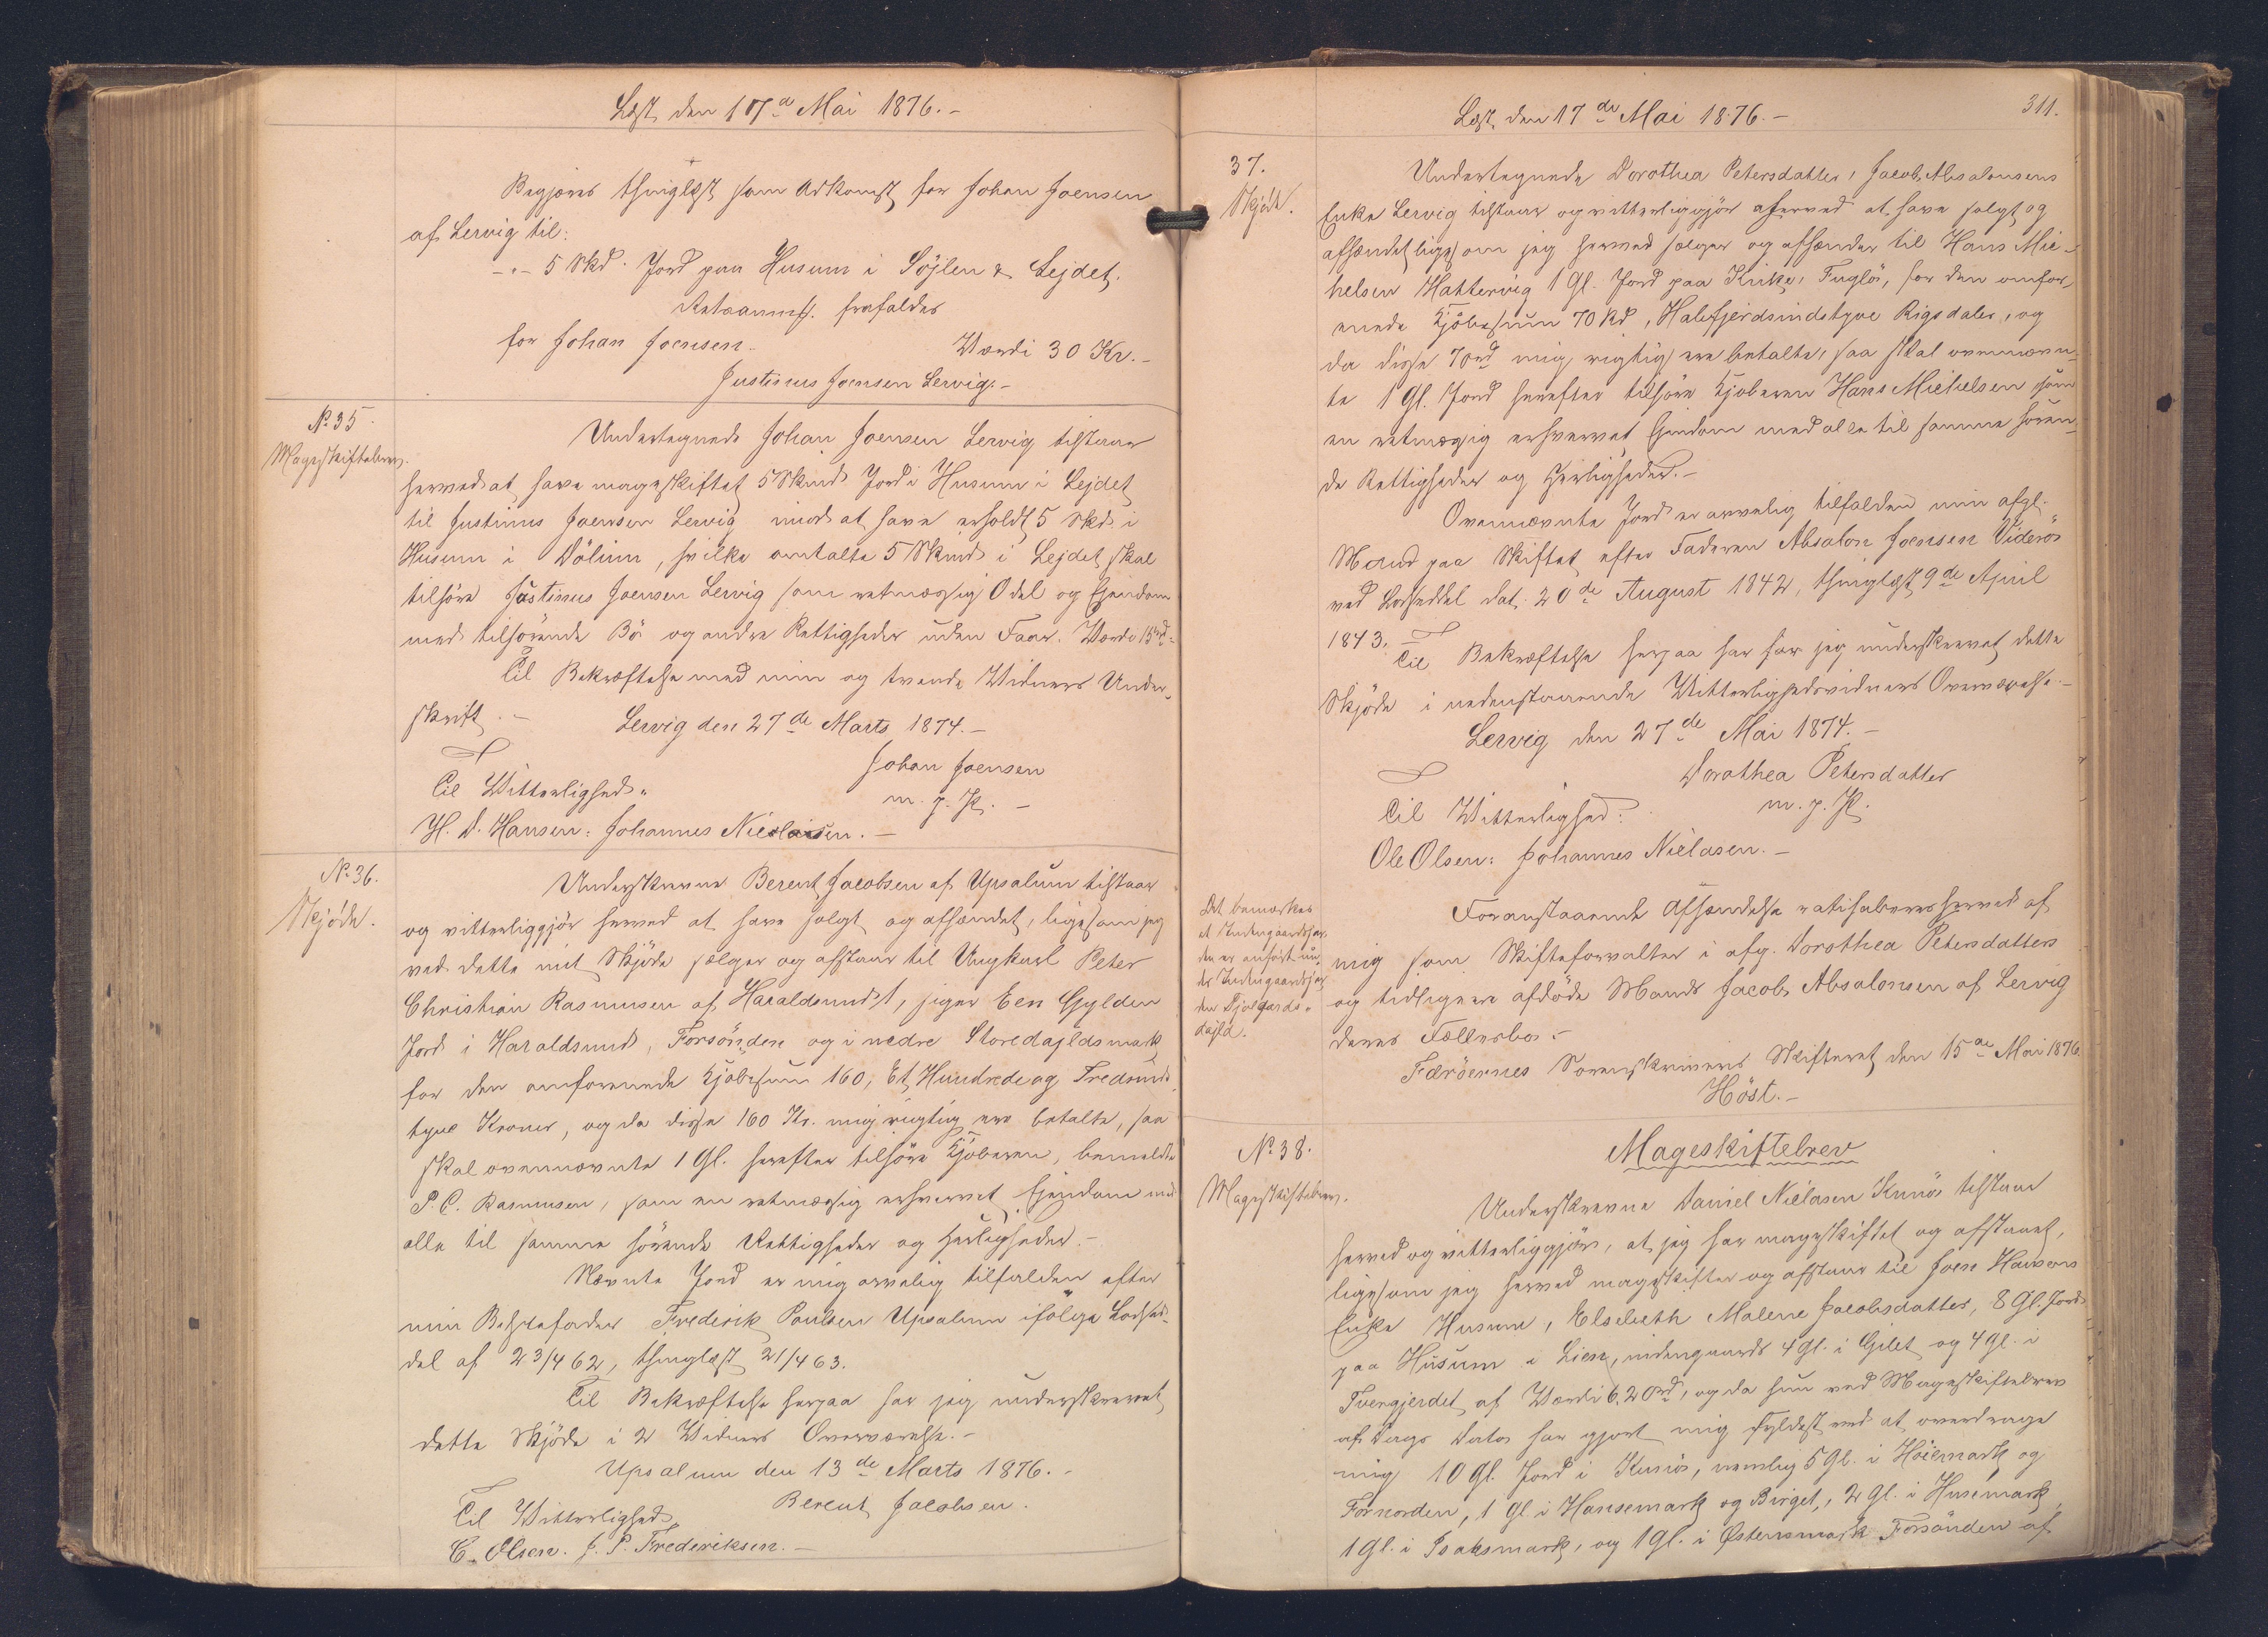 Læst, den 17de Mai 1876.-
Begjæres thinglæst som Adkomst for Johan Joensen
af Lervig til:
-"- 5 Skd. Jord paa Husum i Söjlen & Lejdet.
frafaldes
for Johan Joensen. Værdi 30 Kr.-
Justinus Joensen Lervig.-
No. 35.
Mageskiftebrev.
Undertegnede Johan Joensen Lervig tilstaar
herved at have mageskiftet 5 Skind Jord i Husum i Lejdet
til Justinus Joensen Lervig imod at have erholdt 5 Skd. i
Husum i Dölinn, hvilke omtalte 5 Skind i Lejdet skal
tilhöre Justinus Joensen Lervig som retmæssig Odel og Ejendom
med tilhörende Bö og andre Rettigheder uden Faar. Værdi 15rd.-
Til Bekræftelse med min og tvende Vidners Under-
skrift.- Lervig den 27de Marts 1874.-
Johan Joensen
Til Vitterlighed: m. p. P.-
H. D. Hansen: Johannes Nicolaisen.-
No. 36.
Skjöde.
Underskrevne Berent Jacobsen af Upsalum tilstaar
og vitterliggjör herved at have solgt og afhændet, ligesom jeg
ved dette mit Skjöde sælger og afstaar til Ungkarl Peter
Christian Rasmussen af Haraldsund, siger Een Gylden
Jord i Haraldsund, Forsönden og i nedre Storedajldsmark
for den omforenede Kjöbesum 160, Et Hundrede og Tredsinds
tyve Kroner, og da disse 160 Kr. mig rigtig ere betalte, saa
skal ovennævnte 1 Gl. herefter tilhöre Kjöberen, bemeldte
P. C. Rasmussen, som en retmæssig erhvervet Ejendom med
alle til samme hörende Rettigheder og Herligheder.-
Nævnte Jord er mig arvelig tilfalden efter
min Bedstefader Frederik Poulsen Upsalum ifölge Lodsed-
del af 23/4 62, thinglæst 21/4 63.
Til Bekræftelse herpaa har jeg underskrevet
dette Skjöde i 2 Vidners Overværelse.-
Upsalum den 13de Marts 1876.-
Berent Jacobsen.
Til Vitterlighed
C. Olsen. J. P. Frederiksen.-
Læst, den 17de Mai 1876.-
311.
37.
Skjöde.
Undertegnede Dorothea Petersdatter, Jacob Absalonsens
Enke Lervig tilstaar og vitterliggjör herved at have solgt og
afhændet ligesom jeg herved sælger og afhænder til Hans Mic-
helsen Hattervig 1 Gl. Jord paa Kirke, Fuglö, for den omfor-
enede Kjöbesum 70 Rd, Halvfjerdsindstyve Rigsdaler, og
da disse 70rd mig rigtig ere betalte, saa skal ovennævn-
te 1 Gl. Jord herefter tilhöre Kjöberen Hans Michelsen som
en retmæssig erhvervet Ejendom med alle til samme hören-
de Rettigheder og Herligheder.-
Ovennævnte Jord er arvelig tilfalden min afgl.
Mand paa Skiftet efter Faderen Absalon Joensen Viderö
ved Lodseddel dat. 20de August 1842, thinglæst 9de April
1843.
Til Bekræftelse herpaa har jeg underskrevet dette
Skjöde i nedenstaaende Vitterlighedsvidners Overværelse.-
Lervig den 27de Mai 1874.-
Dorothea Petersdatter
Til Vitterlighed: m. p. P.
Ole Olsen: Johannes Nielasen.-
Det bemærkes
at Indengaardsjor-
den er anfört un-
der Indengaardsjor-
den
Foranstaaende Afhændelse ratihaberes herved af
mig som Skifteforvalter i afg. Dorothea Petersdatters
og tidligere afdöde Mands Jacob Absalonsen af Lervig
deres Fællesbo.-
Færöernes Sorenskriveris Skifteret den 15de Mai 1876.
Höst.-
No. 38.
Mageskiftebrev.
Mageskiftebrev
Underskrevne Daniel Nielasen Kunö tilstaar
herved og vitterliggjör, at jeg har mageskiftet og afstaaet,
ligesom jeg herved mageskifter og afstaar til Joen Hansens
Enke Husum, Elsebeth Malene Jacobsdatter, 8 Gl. Jord
paa Husum i Lien, indengaards 4 Gl. i Gilet og 4 Gl. i
Tvergjerdet af Værdi 620rd, og da hun ved Mageskiftebrev
af Dags Dato har gjort mig fyldest ved at overdrage
mig 10 Gl. Jord i Kunö, nemlig 5 Gl. i Höiemark og
Fornorden, 1 Gl. i Hansemark og Birget, 2 Gl. i Husemark,
1 Gl. i Isaksmark, og 1 Gl. i Østensmark Forsönden af